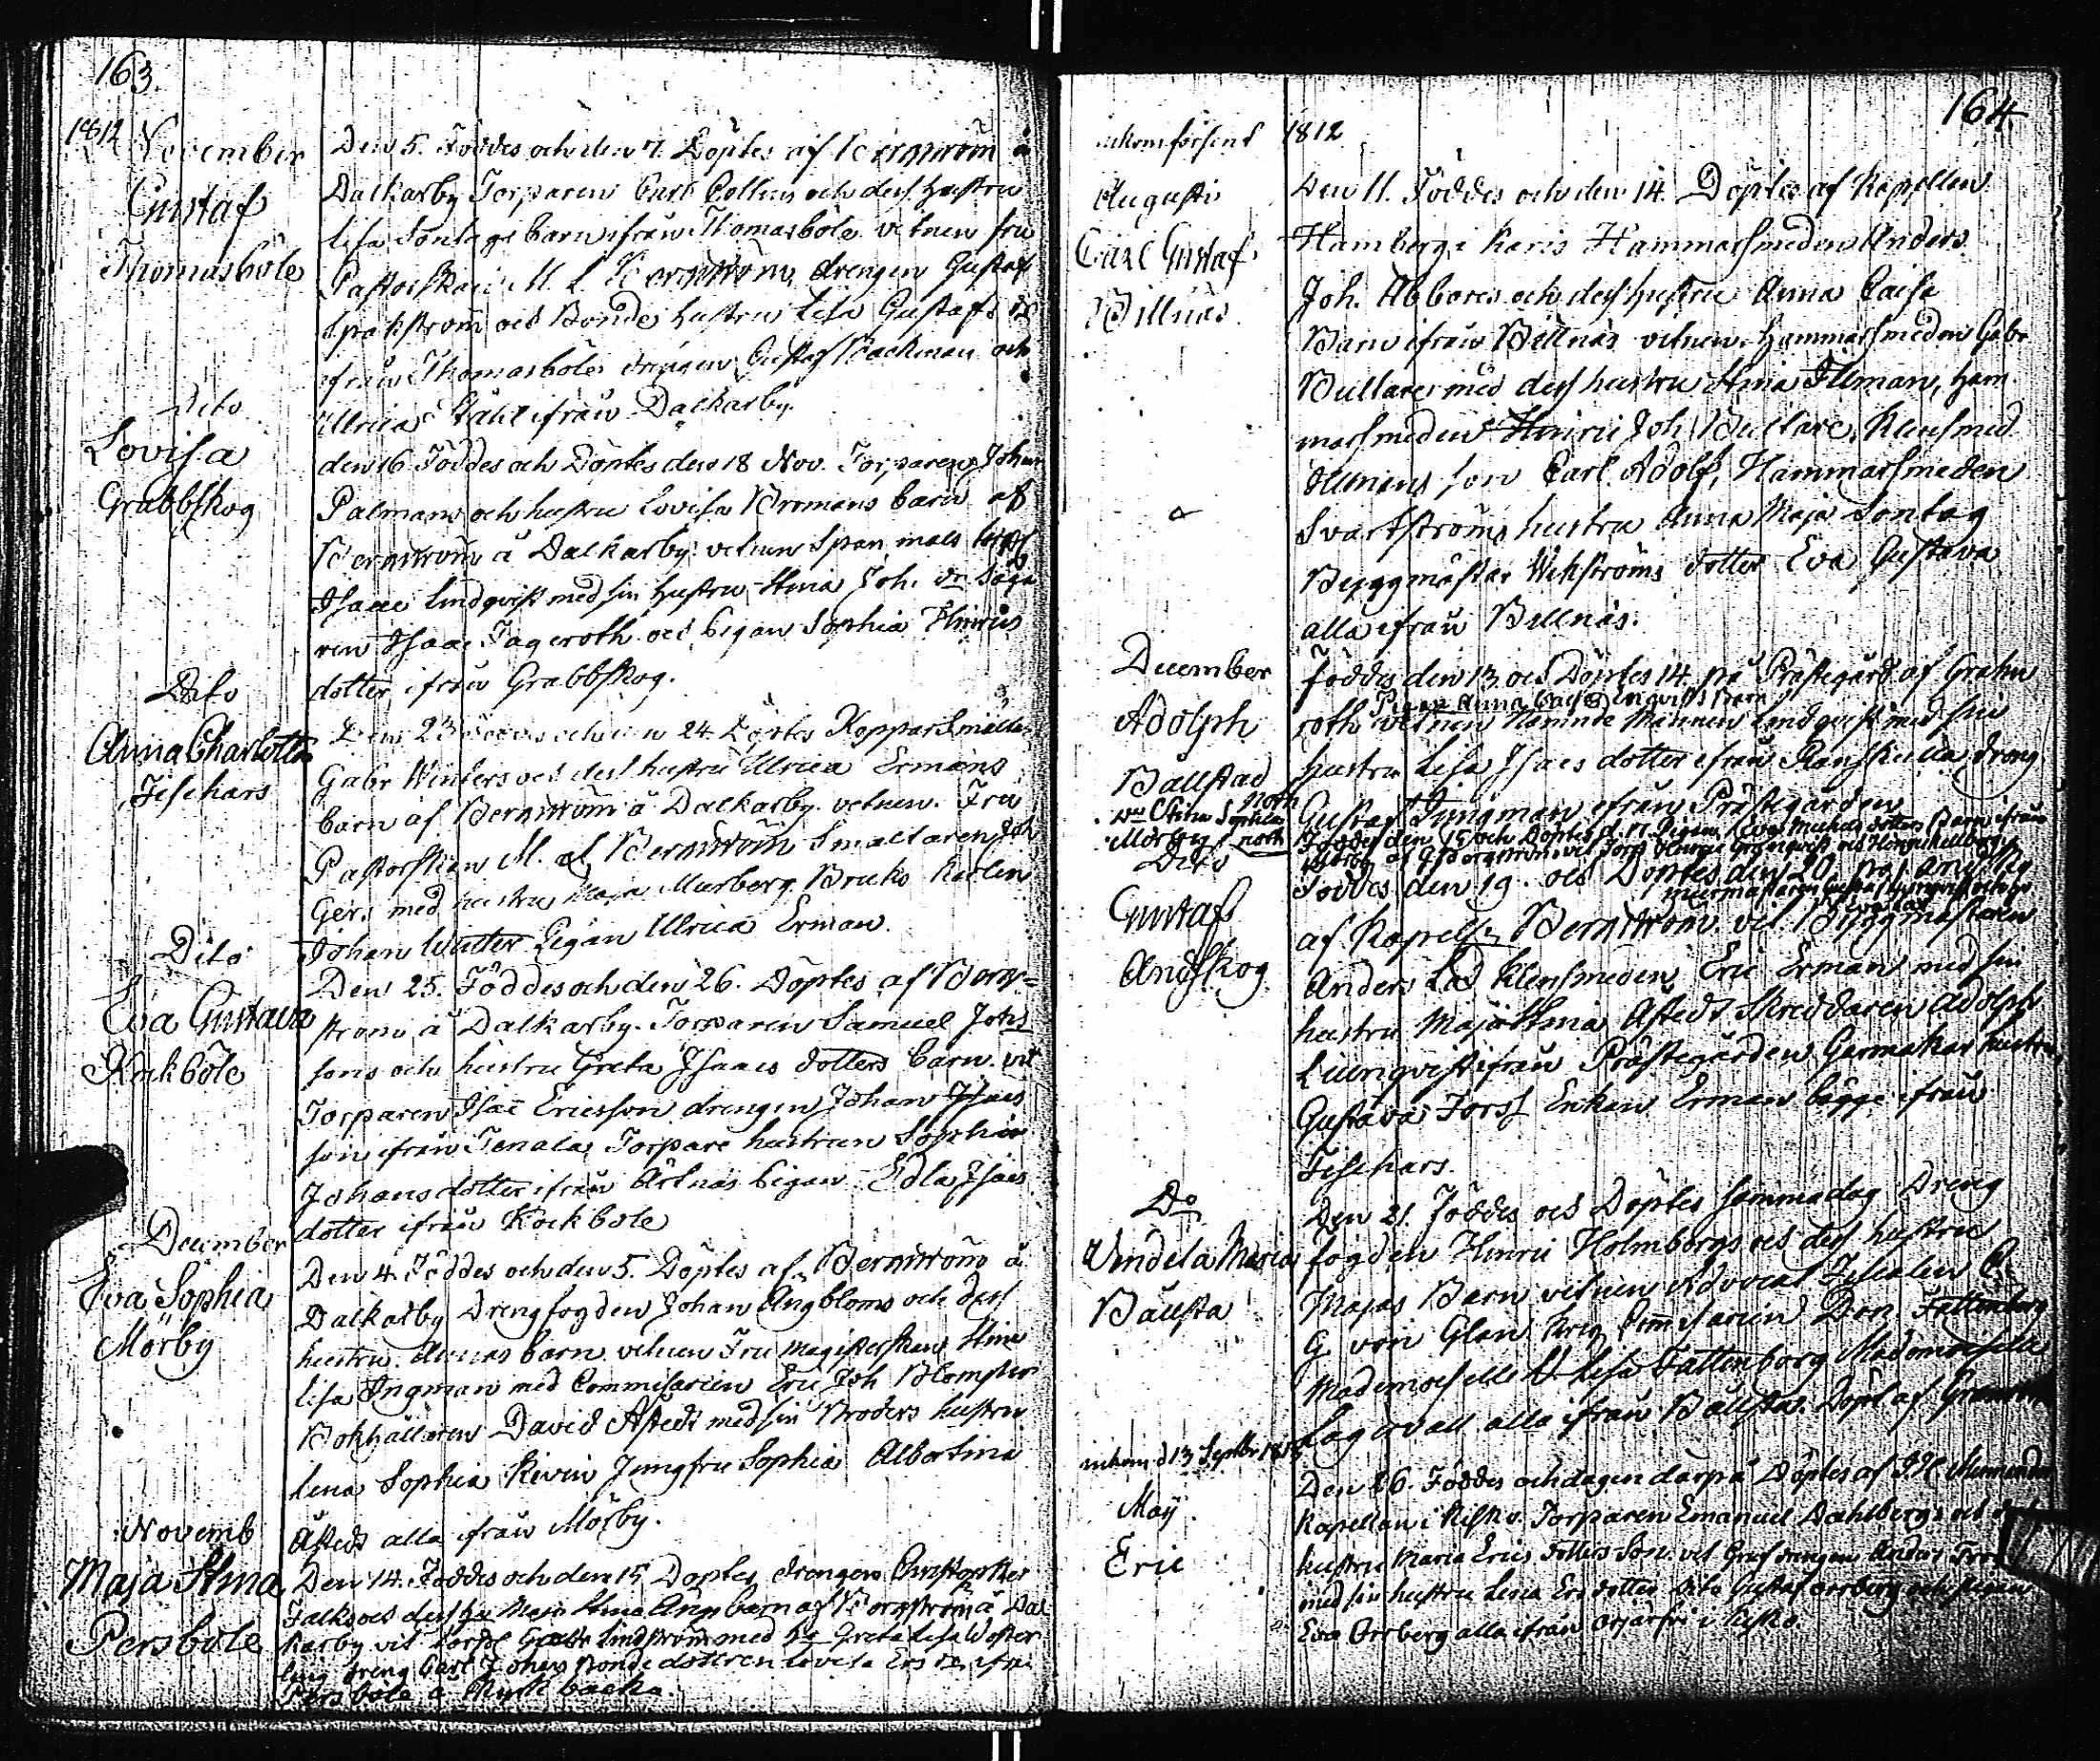 163
1812 November
Gustaf
Thomasböle
Den 5. Föddes och den 7. Döptes af Bergström å
Dalkarby Torparens Carl Collins och dess hustru
Lisa Sontags barn ifrån Thomasböle vitnen fru
Pastorskan M. L. Bergström, drengen Gustaf
Spakström och Bonde hustru Lisa Gustafs dr
ifrån Thomasböle drengen Gustaf Backman och
Ulrica Ståhl ifrån Dalkarby.
Dito
Lovisa
Grabbskog
den 16 Föddes och Döptes den 18 Nov. Torparen Johan
Palmans och hustru Lovisa Bromans barn af
Bergström å Dalkarby. vitnen Span mals torp
Isaac Lindqvist med sin hustru Stina Joh. dr
ren Isaac Fageroth och Pigan Sophia Hinrics
dotter ifrån Grabbskog.
Dito
Anna Charlotta
Fischars
Den 23 Föddes och den 24 Döptes Kopparsmältar
Gabr Winters och dess hustru Ulrica Ermans
barn af Bergström å Dalkarby. vitnen. Fru
Pastorskan M. L. Bergström Smältaren Joh
Gers med hustru Maja Murberg. Bruks Karlen
Johan Winter Pigan Ulrica Erman.
Dito
Eva Gustava
Kåckböle
Den 25. Föddes och den 26. Döptes af Berg=
ström å Dalkarby. Torparen Samuel Johs
sons och hustru Greta Isaacs dotters barn. vit
Torparen Isac Ericsson drengen Johan Isacs
son ifrån Tenala, Torpare hustrun Sophia
Johansdotter ifrån Ärtnäs Pigan Edla Isacs
dotter ifrån Kockböle
December
Eva Sophia
Mörby
Den 4. Föddes och den 5. Döptes af Bergström å
Dalkarby Drengfogden Johan Ångbloms och dess
hustru Annas barn. vitnen Fru Magisterskan Stina
Lisa Ingman med Commisarien Eric Joh Blomster
Bokhållaren David Åstedt med sin Broders hustru
Lena Sophia Kevin Jungfru Sophia Albertina
Åstedt alla ifrån Mörby.
Novemb
Maja Stina
Persböle
Den 14. Föddes och den 15 Döptes drengen Christopher
Falks och dess hu Maja Stina barn af Bergström å Dal
karby vit torp Gabr Lindström med hu Greta Lisa Wester
ling dreng Carl Johan Bonde dottren Lovisa Ers dr ifrån
Persböle å backa
164
inkom försent 1812
Augusti
Carl Gustaf
Billnäs
Den 11. Föddes och den 14. Döptes af Kapellan
Hamberg i Karis Hammarsmeden Anders
Joh. Abbores och dess hustru Anna Caisa
Barn ifrån Billnäs vitnen. Hammarsmeden Gabr
Bultare med dess hustru Stina Illman, Ham
marsmeden Hinric Joh Bultare, Klensmed
Illmans son Carl Adolf, Hammarsmeden
Svartströms hustru Anna Maja Sontag
Byggmästar Wikströms dotter Eva Gustava
alla ifrån Billnäs.
December
Adolph
Bållstad
Föddes den 13 och Döptes 14 på Prästegård af Grahn
Pigan Anna Caisa Enqvists barn
roth vitnen Nämnde Mannen Lindqvist med sin
hustru Lisa Isacs dotter ifrån Ranskulla dreng
Gustaf Ljungman ifrån Prästegården
Stina Sophia
Mörby noth
Föddes den 15 och Döptes d. 17. Pigan Eva Michels dotters Barn ifrån
Mörby af Bergström vit Torp Hinric Granqvist och
Dito
Gustaf
Andskog
Föddes den 19. och Döptes den 20. på Andskog
af Kapell Bergström. vit. Byggmästaren
Anders Lad Klensmeden Eric Erman med sin
hustru Maja Stina Åstedt Skreddaren Adolph
Liungqvist ifrån Prästegården Garmakar hustru
Gustava Forss Enkan Erman bägge ifrån
Fischars.
Do
Vendela Maria
Bållsta
Den 21. Föddes och Döptes samma dag Dreng
fogden Hinric Holmbergs och dess hustru
Majas Barn vitnen Advocat Fiscalen C.
G. von Glan Krigs Commisarien Dan. Fattenborg
Mademoiselle U. Lisa Fattenborg Mademoiselle
Lagervall alla ifrån Bållsta. Döpt af
inkom d 13 Septbr 1813
May
Eric
Den 26. Föddes och dagen därpå Döptes af
Kapellan i Kisko. Torparen Emanuel Dahlbergs och dess
hustru Maria Erics dotters Son. vit Grufdrengen Anders
med sin hustru Lisa Ers dotter Dito Gustaf Orrberg och pigan
Eva Orrberg alla ifrån Orijärfvi i Kisko.